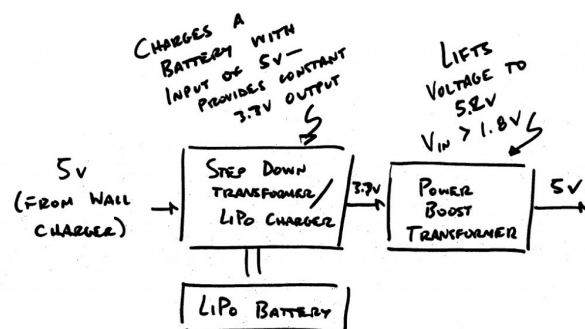 CHARGES A
BATTERY WITH
INPUT OF 5V—
PROVIDES CONSTANT
3.3V OUTPUT
LIFTS
VOLTAGE TO
5.2V
VIN > 1.8V
5V
(FROM WALL
CHARGER)
STEP DOWN
TRANSFORMER/
LIPO CHARGER
3.3V
POWER
BOOST
TRANSFORMER
5V
LIPO BATTERY